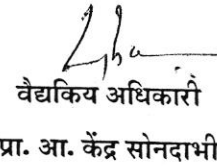 वैद्यकिय अधिकारी
प्रा. आ. केंद्र सोनदाभी